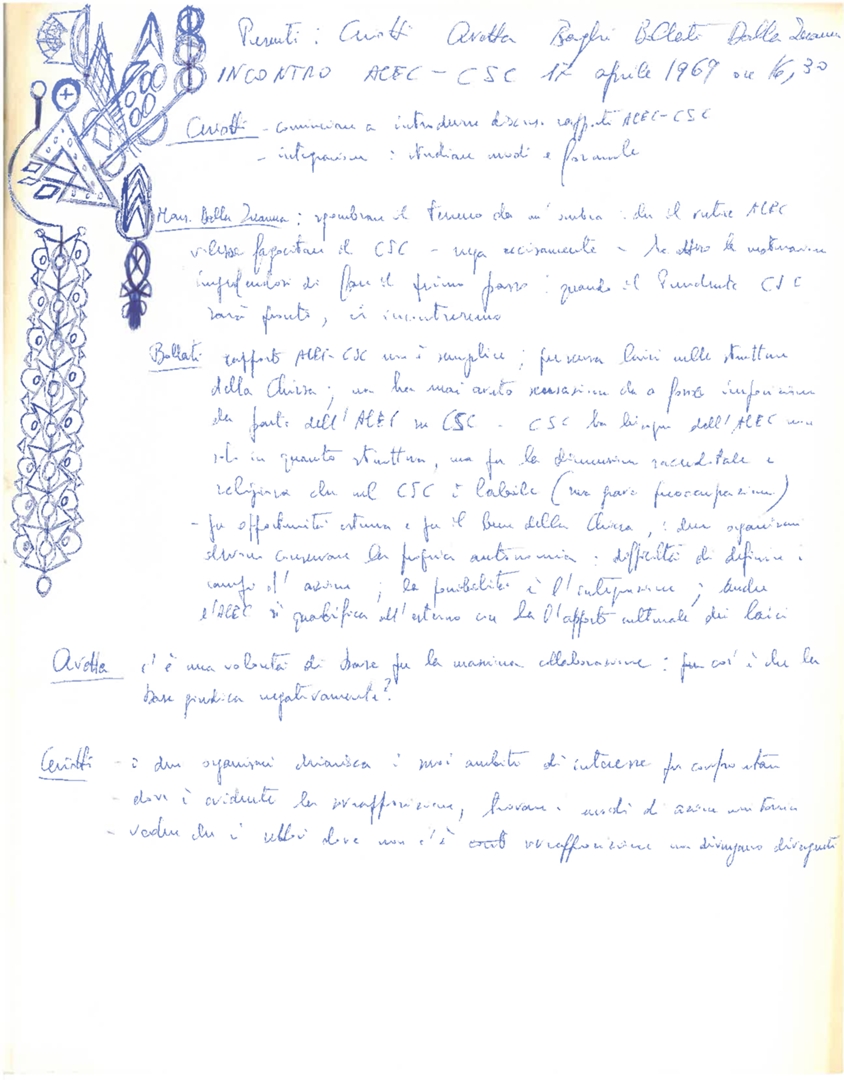 Presenti: Ceriotti Avetta Borghi Ballati Dalla Zuanna
INCONTRO ACEC - CSC 17 aprile 1967 ore 16,30
Ceriotti - cominciare a introdurre discorso rapporti ACEC-CSC
- integrazione: studiare modi e formule
Mons. Dalla Zuanna: sgombrare il terreno da un'ombra: che il vertice ACEC
volesse fagocitare il CSC - nega recisamente -
di fare il primo passo: quando il Presidente CSC
sarà pronto, ci incontreremo
Ballati rapporto ACEC-CSC non è semplice; presenza laici nelle strutture
della Chiesa; non ha mai avuto sensazione che ci fosse imposizione
da parte dell'ACEC su CSC - CSC ha bisogno dell'ACEC non
solo in quanto struttura, ma per la dimensione sacerdotale e
religiosa che nel CSC è labile (sua grave preoccupazione)
- per opportunità esterna e per il bene della Chiesa, i due organismi
devono conservare la propria autonomia: difficoltà di definire i
campi d'azione; la possibilità è l'integrazione; anche
l'ACEC si qualifica all'esterno con l'apporto culturale dei laici
Avetta c'è una volontà di base per la massima collaborazione: per cos'è che la
base giudica negativamente?
Ceriotti - i due organismi chiarisca i suoi ambito di interesse per confrontarli
- dove è evidente la sovrapposizione, trovare i modi di azione unitaria
- vedere che i settori dove non c'è sovrapposizione non divengano divergenti